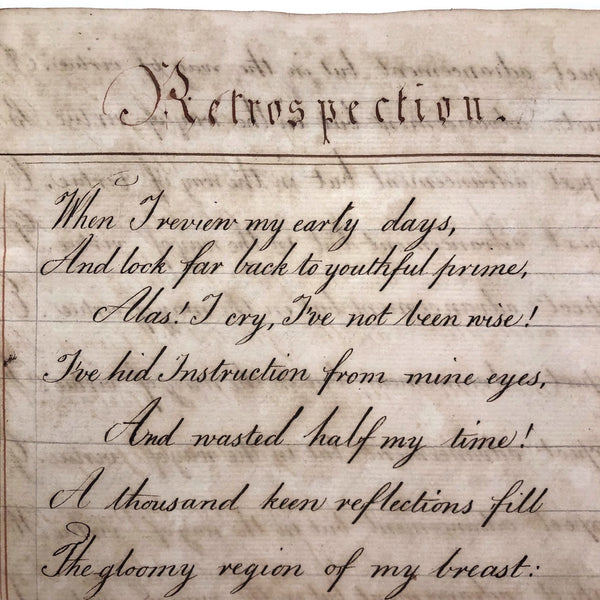 Retrospection.
When I review my early days,
And look far back to youthful prime,
Alas! I cry, I've not been wise!
I've hid Instruction from mine eyes,
And wasted half my time!
A thousand keen reflections fill
The gloomy region of my breast: